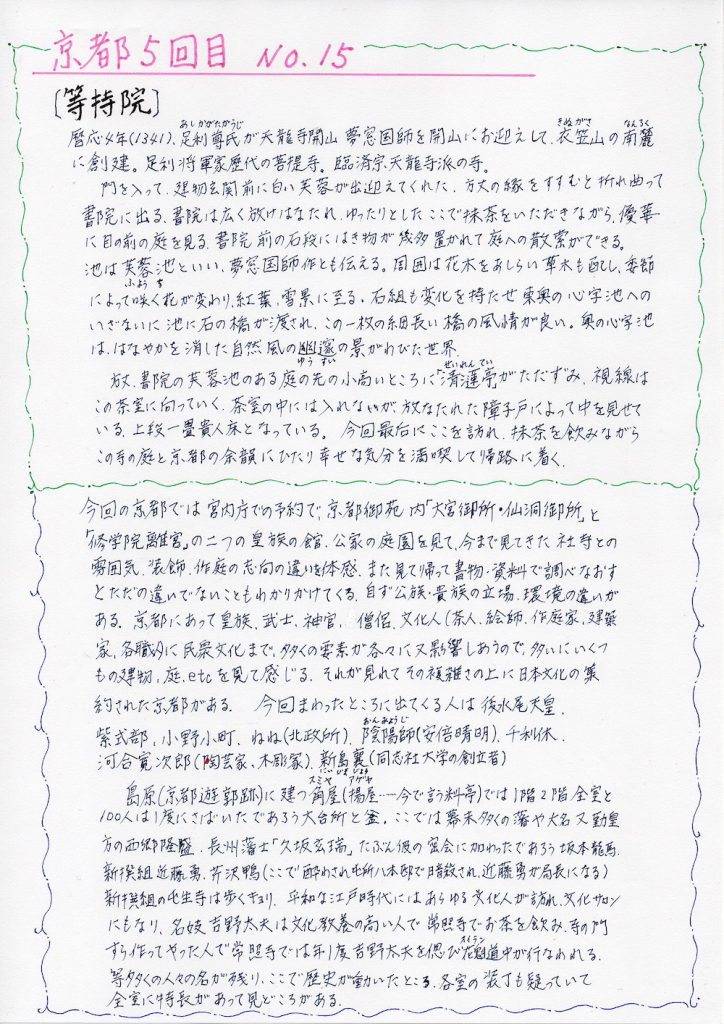 京都5回目 NO.15
〔等持院〕
暦応4年(1341)、足利尊氏が天龍寺開山 夢窓国師を開山にお迎えして、衣笠山の南麓
あしかがたかうじ きぬがさ なんろく
に創建。足利将軍家歴代の菩提寺。臨済宗天龍寺派の寺。
門を入って、建物玄関前に白い芙蓉が出迎えてくれた。方丈の縁をすすむと折れ曲って
書院に出る、書院は広く放けはなたれ、ゆったりとしたここで抹茶をいただきながら、優華
に目の前の庭を見る。書院前の石段にはき物が幾多置かれて庭への散索ができる。
池は芙蓉池といい、夢窓国師作とも伝える。周囲は花木をあしらい草木も配し、季節
ふよう ち
によって咲く花が変わり、紅葉、雪景に至る。石組も変化を持たせ東奥の心字池への
いざないに池に石の橋が渡され、この一枚の細長い橋の風情が良い。奥の心字池
は、はなやかを消した自然風の幽邃の景がわびた世界。
ゆう すい
せいれんてい
方丈、書院の芙蓉池のある庭の先の小高いところに「清漣亭」がただずみ、視線は
この茶室に向っていく。茶室の中には入れないが、放なたれた障子戸によって中を見せて
いる。上段一畳貴人床となっている。今回最後にここを訪れ、抹茶を飲みながら
この寺の庭と京都の余韻にひたり幸せな気分を満喫して帰路に着く。
今回の京都では宮内庁での予約で、京都御苑内「大宮御所・仙洞御所」と
「修学院離宮」の二つの皇族の館、公家の庭園を見て、今まで見てきた社寺との
雰囲気、装飾、作庭の志向の違いを体感、また見て帰って書物・資料で調べなおす
とただの違いでないこともわかりかけてくる。自ず公族・貴族の立場、環境の違いが
ある。京都にあって皇族、武士、神官、僧侶、文化人(茶人、絵師、作庭家、建築
家、各職)に民衆文化まで、多くの要素が各々に又影響しあうので、多いにいくつ
もの建物、庭、etcを見て感じる。それが見れてその複雑さの上に日本文化の集
約された京都がある。 今回まわったところに出てくる人は後水尾天皇、
おんみょうじ
紫式部、小野小町、ねね(北政所)、陰陽師(安倍晴明)、千利休、
河合寛次郎(陶芸家、木彫家)、新島襄(同志社大学の創立者)
にいじま じょう
スミヤ アゲヤ
島原(京都遊郭跡)に建つ角屋(揚屋…今で言う料亭)では1階2階全室と
100人は1度にさばいたであろう大台所と釜。ここでは幕末多くの藩や大名又勤皇
方の西郷隆盛、長州藩士「久坂玄瑞」たぶん彼の宴会に加わったであろう坂本龍馬、
新撰組近藤勇、芹沢鴨(ここで酔わされ屯所八木邸で暗殺され、近藤勇が局長になる)
新撰組の壬生寺は歩くキョリ、平和な江戸時代にはあらゆる文化人が訪れ、文化サロン
にもなり、名妓吉野太夫は文化教養の高い人で常照寺でお茶を飲み、寺の門
すら作ってやった人で常照寺では年1度吉野太夫を偲び花魁道中が行なわれる。
オイラン
等多くの人々の名が残り、ここで歴史が動いたところ、各室の装丁も凝っていて
全室に特長があって見どころがある。